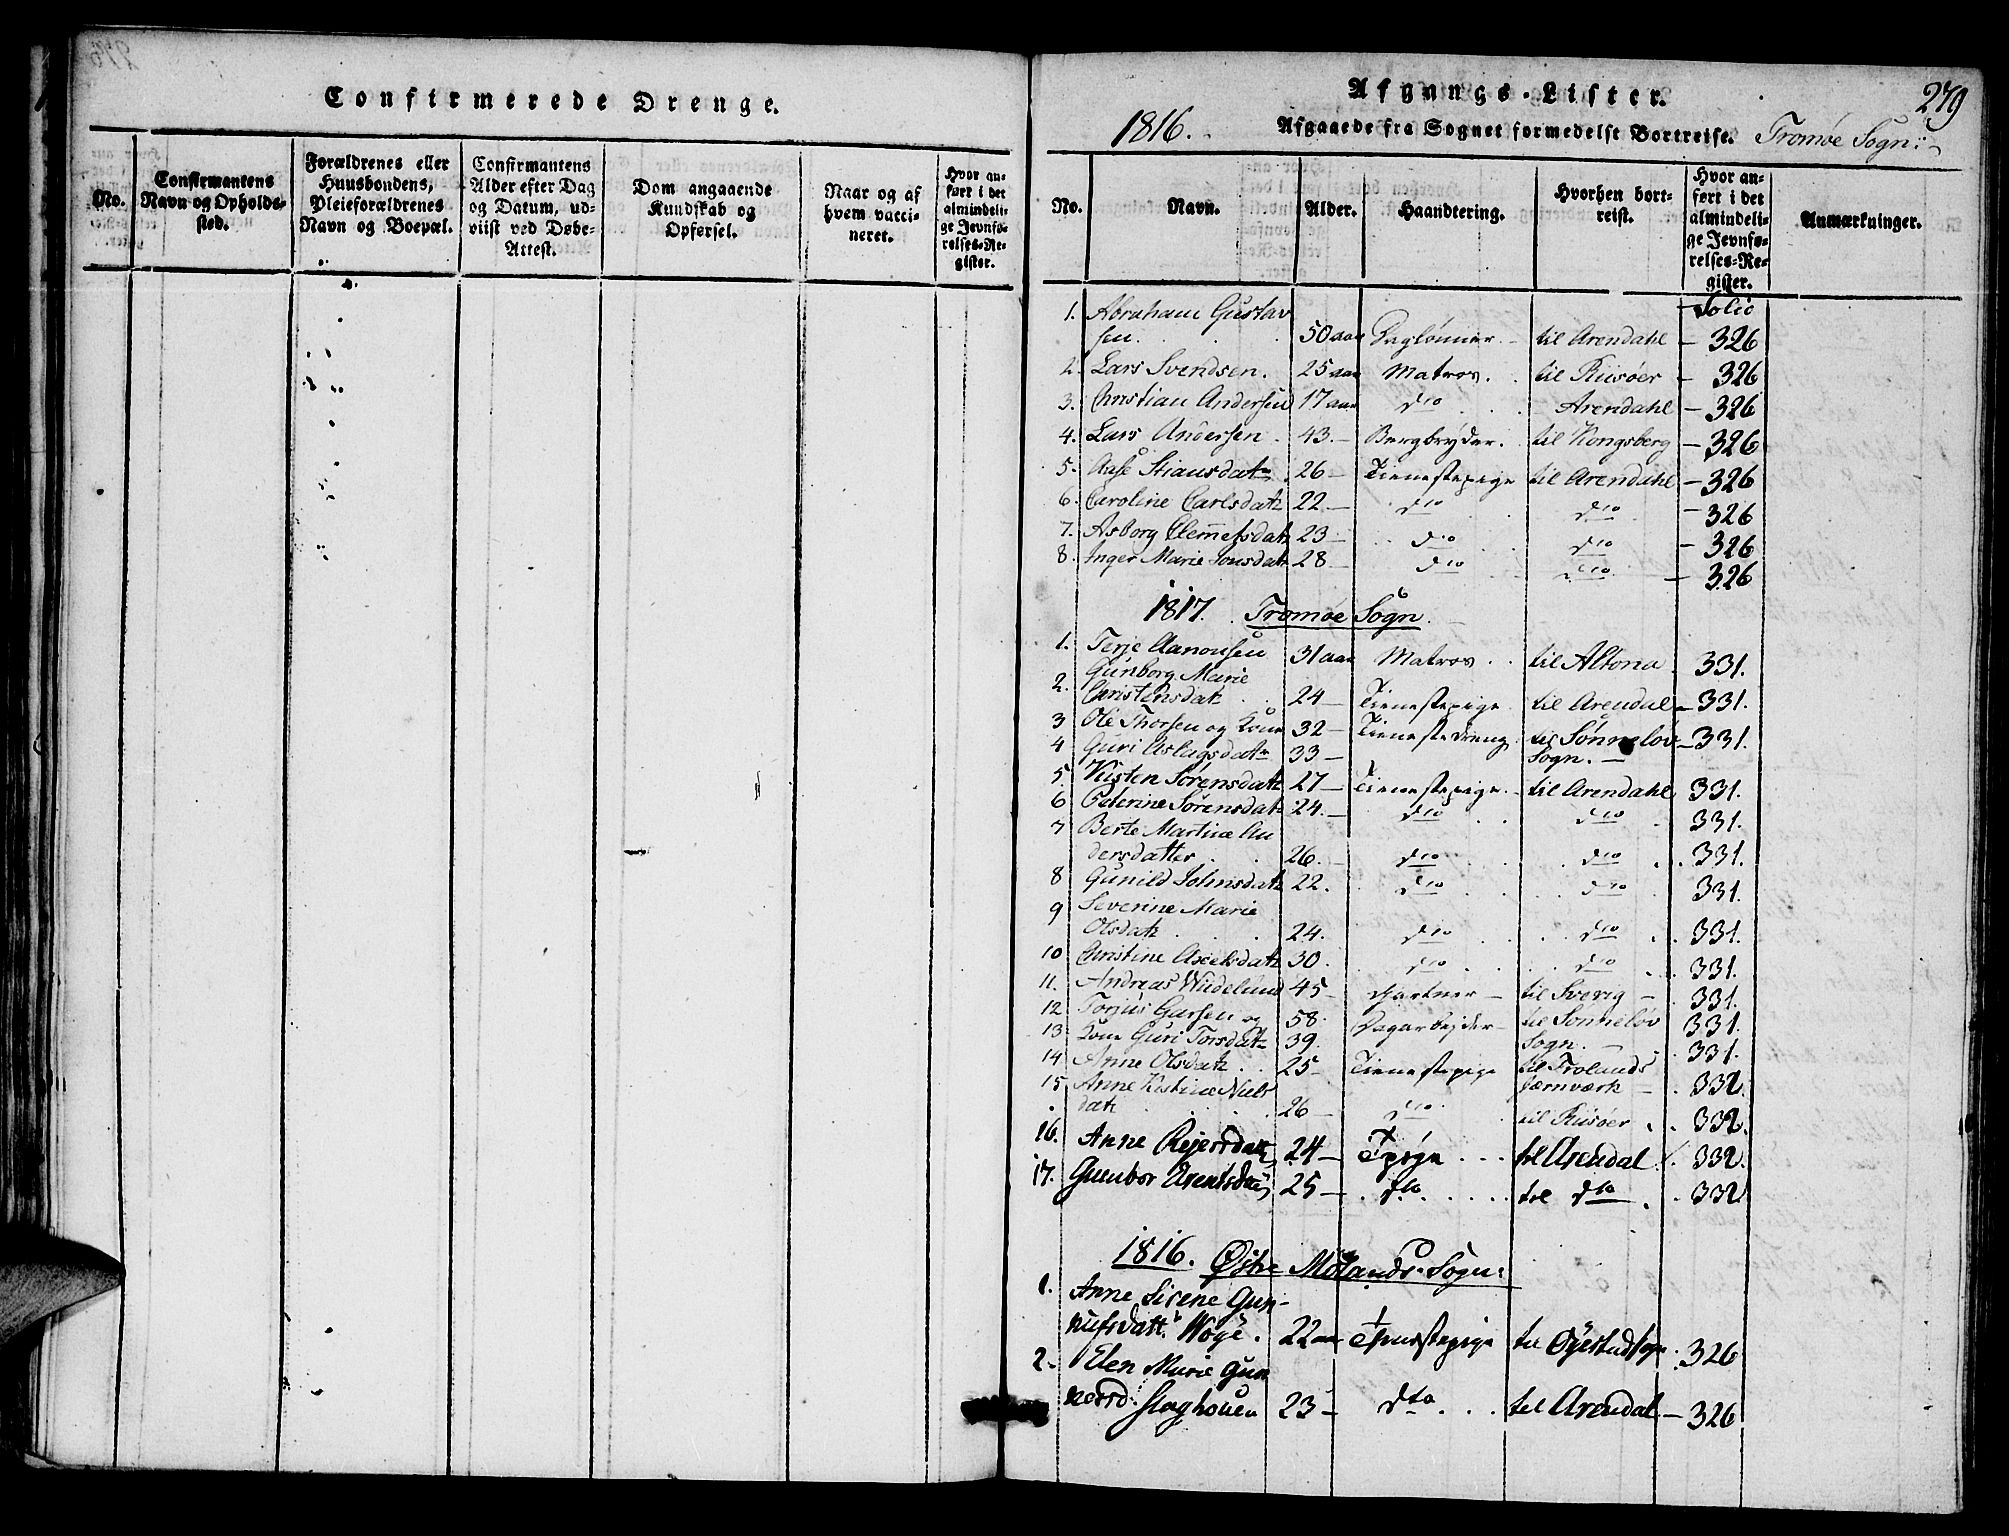 Confirmerede Drenge.
No. | Confirmantens Navn og Opholds-sted. | Forældrenes eller Huusbondens, Pleieforældrenes Navn og Boepæl. | Confirmantens Alder efter Dag og Datum, ud-viist ved Døbe-Attest. | Dom angaaende Kundskab og Opførsel. | Naar og af hvem vacci-neret. | Hvor an-ført i det almindeli-ge Jevnfø-relses-Re-gister.
279
Afgangs-Lister.
1816. Afgaaede fra Sognet formedelst Bortreise. Tromøe Sogn:
No. | Navn. | Alder. | Haandtering. | Hvorhen bort-reist. | Hvor an-ført i det almindeli-ge Jevnfø-relses-Re-gister. | Anmærkninger.
Folio
1. Abraham Gustav
sen. 50 aar Daglønner til Arendahl – 326
2. Lars Svendsen. 25 aar Matros. til Riisøer – 326
3. Christian Andersen 17 aar dto Arendahl – 326
4. Lars Andersen. 43. – Bergbryder. til Kongsberg – 326
5. Aase Stiansdatr 26 – Tienestepige til Arendahl – 326
6. Caroline Carlsdatr 22. – dto dto – 326
7. Asborg Clemetsdatr 23 – dto dto – 326
8. Inger Marie Jonsdatr 28 dto dto – 326
1817. Tromøe Sogn.
1. Terje Aanonsen 31 aar Matros til Altona 331.
Gunborg Marie
2. Christensdatr 24 – Tienestepige til Arendal – 331.
3 Ole Thorsen og Kone 32 – Tienestedreng til Sønneløv – 331.
4 Guri Aslagsdatr 33 – Sogn. –
5. Kisten Sørensdatr 27 – Tienestepige – til Arendahl 331.
6 Peterine Sørensdatr 24. – dto dto 331.
7 Berte Martine An
dersdatter 26. – dto dto 331.
8 Gunild Johnsdatr 22. dto dto 331.
9 Severine Marie
Olsdatr 24. dto dto 331.
10 Christine Axelsdatr 30. dto dto 331.
11. Andreas Wiidelund 45 – Gartner – til Sverig – 331.
12 Torjus Garsen og 58. Dagarbejder – til Sønneløv 331.
13 Kone Guri Torsdatr 39. Sogn. – 331.
14 Anne Olsdatr 25 – Tienestepige til Frolands
15 Anne Kistine Niels Jærnværk – 332.
datr 26 – dto til Riisøer 332.
16. Anne Rejersdatr 24 – Tpige til Arendal 332.
17. Gunbor Arentsdatr 25 – dto til dto 332
1816. Østre Molands Sogn:
1. Anne Sirene Gun-
nufsdattr Woge. 22 aar Tienestepige til Øyestad sogn 326
2. Elen Marie Gun
nersd. Staghouen 23 – dto til Arendal – 326